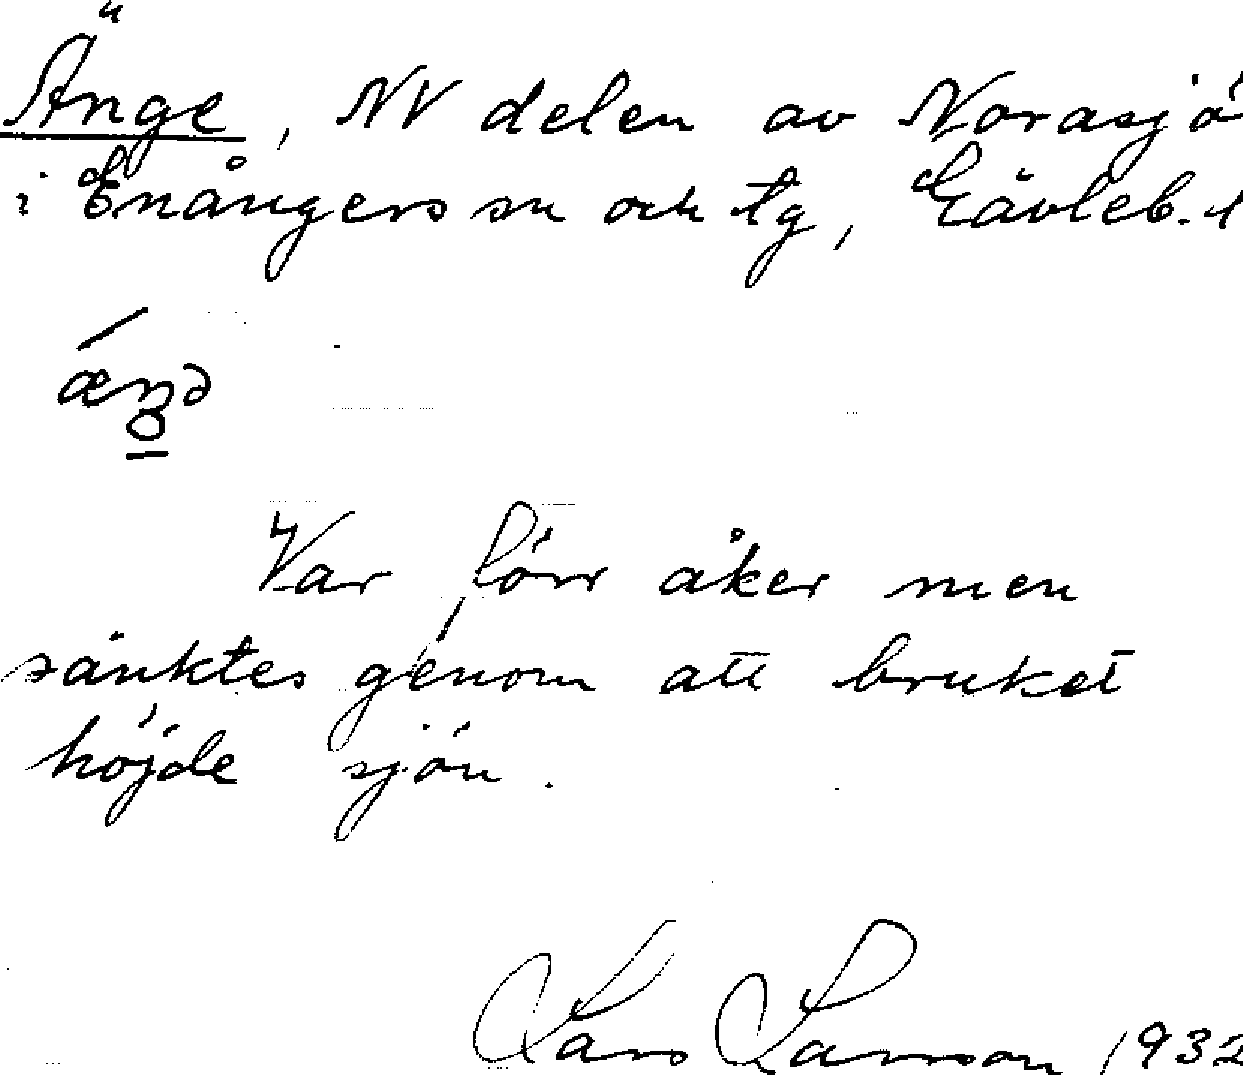 Änge, NV delen av Norasjö
i Enångers sn och tg, Gävleb. l
Var förr åker men
sänktes genom att bruket
höjde sjön.
Lars Larsson 1932